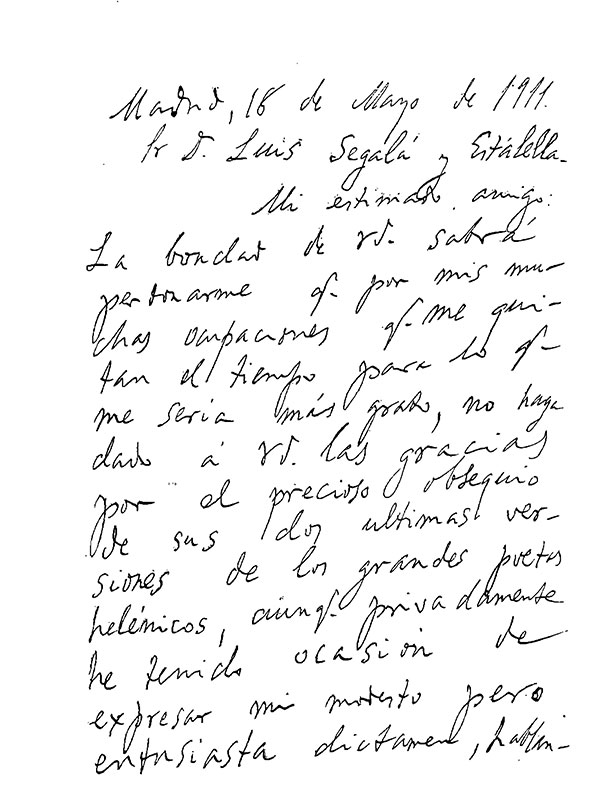 Madrid, 18 de Mayo de 1911.
Sr D. Luis Segalá y Estalella.
Mi estimado amigo:
La bondad de Vd. sabrá
perdonarme q. por mis mu-
chas ocupaciones q. me qui-
tan el tiempo para lo q.
me sería más grato, no haya
dado á Vd. las gracias
por el precioso obsequio
de sus dos ultimas ver-
siones de los grandes poetas
helénicos, aunq. privadamente
he tenido ocasión de
expresar mi modesto pero
entusiasta dictamen, hablan-